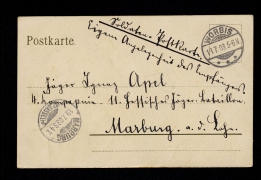 Soldaten-Postkarte.
Postkarte.
Eigene Angelegenheit des Empfängers.
WORBIS
Jäger Ignaz Apel
4. Kompagnie 11. Hessisches Jäger-Bataillon.
Marburg a. d. Lahn.
MARBURG